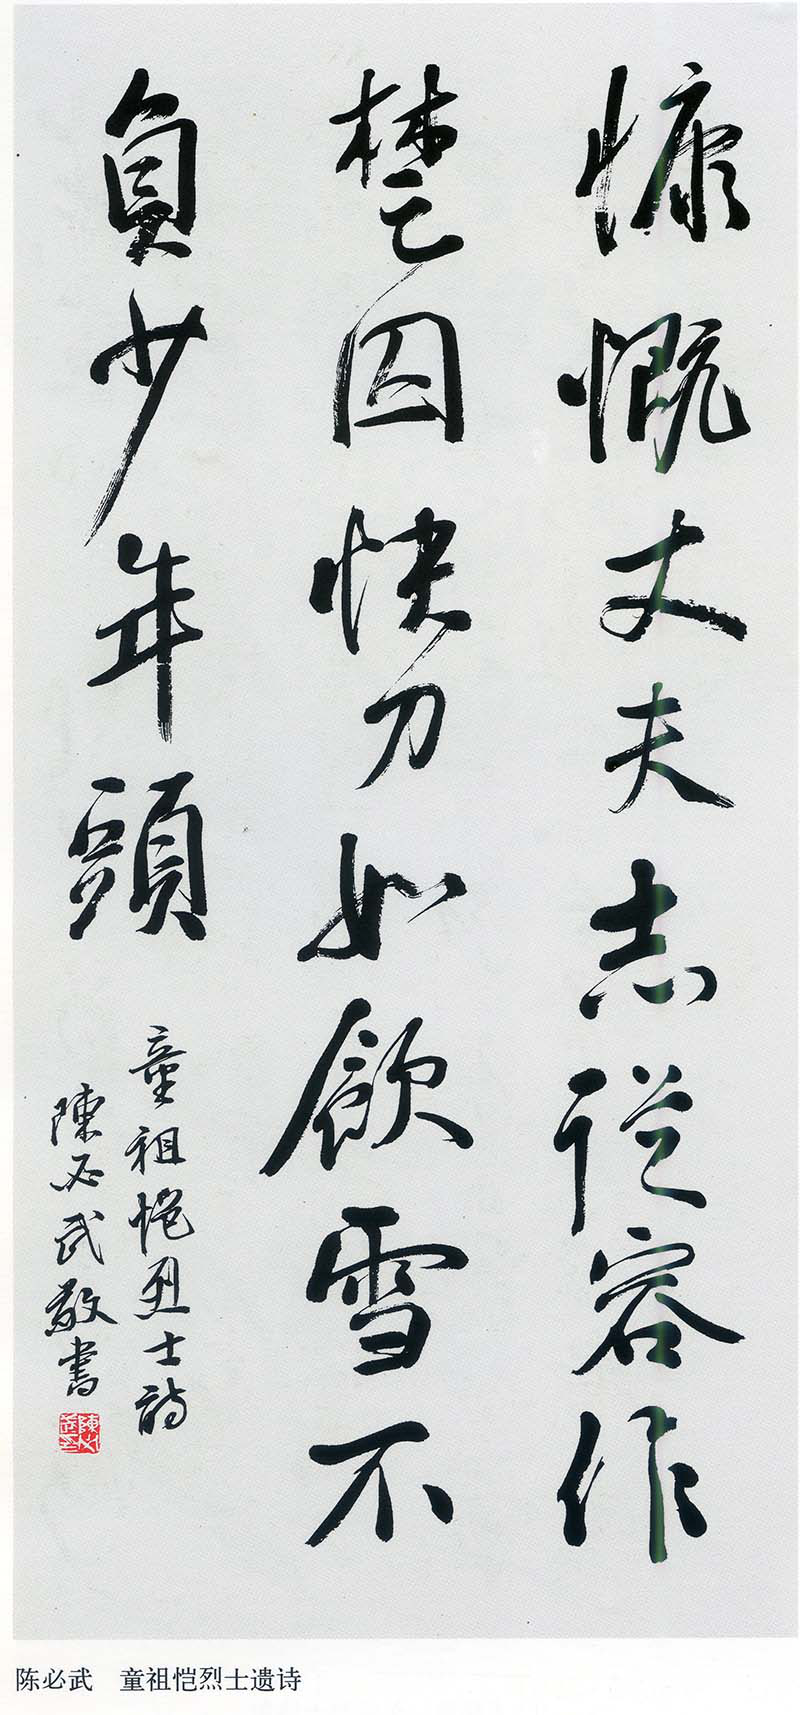 慷慨丈夫志從容作
楚囚快刀如飲雪不
負少年頭
童祖恺烈士詩
陳必武敬書
陈必武　童祖恺烈士遗诗